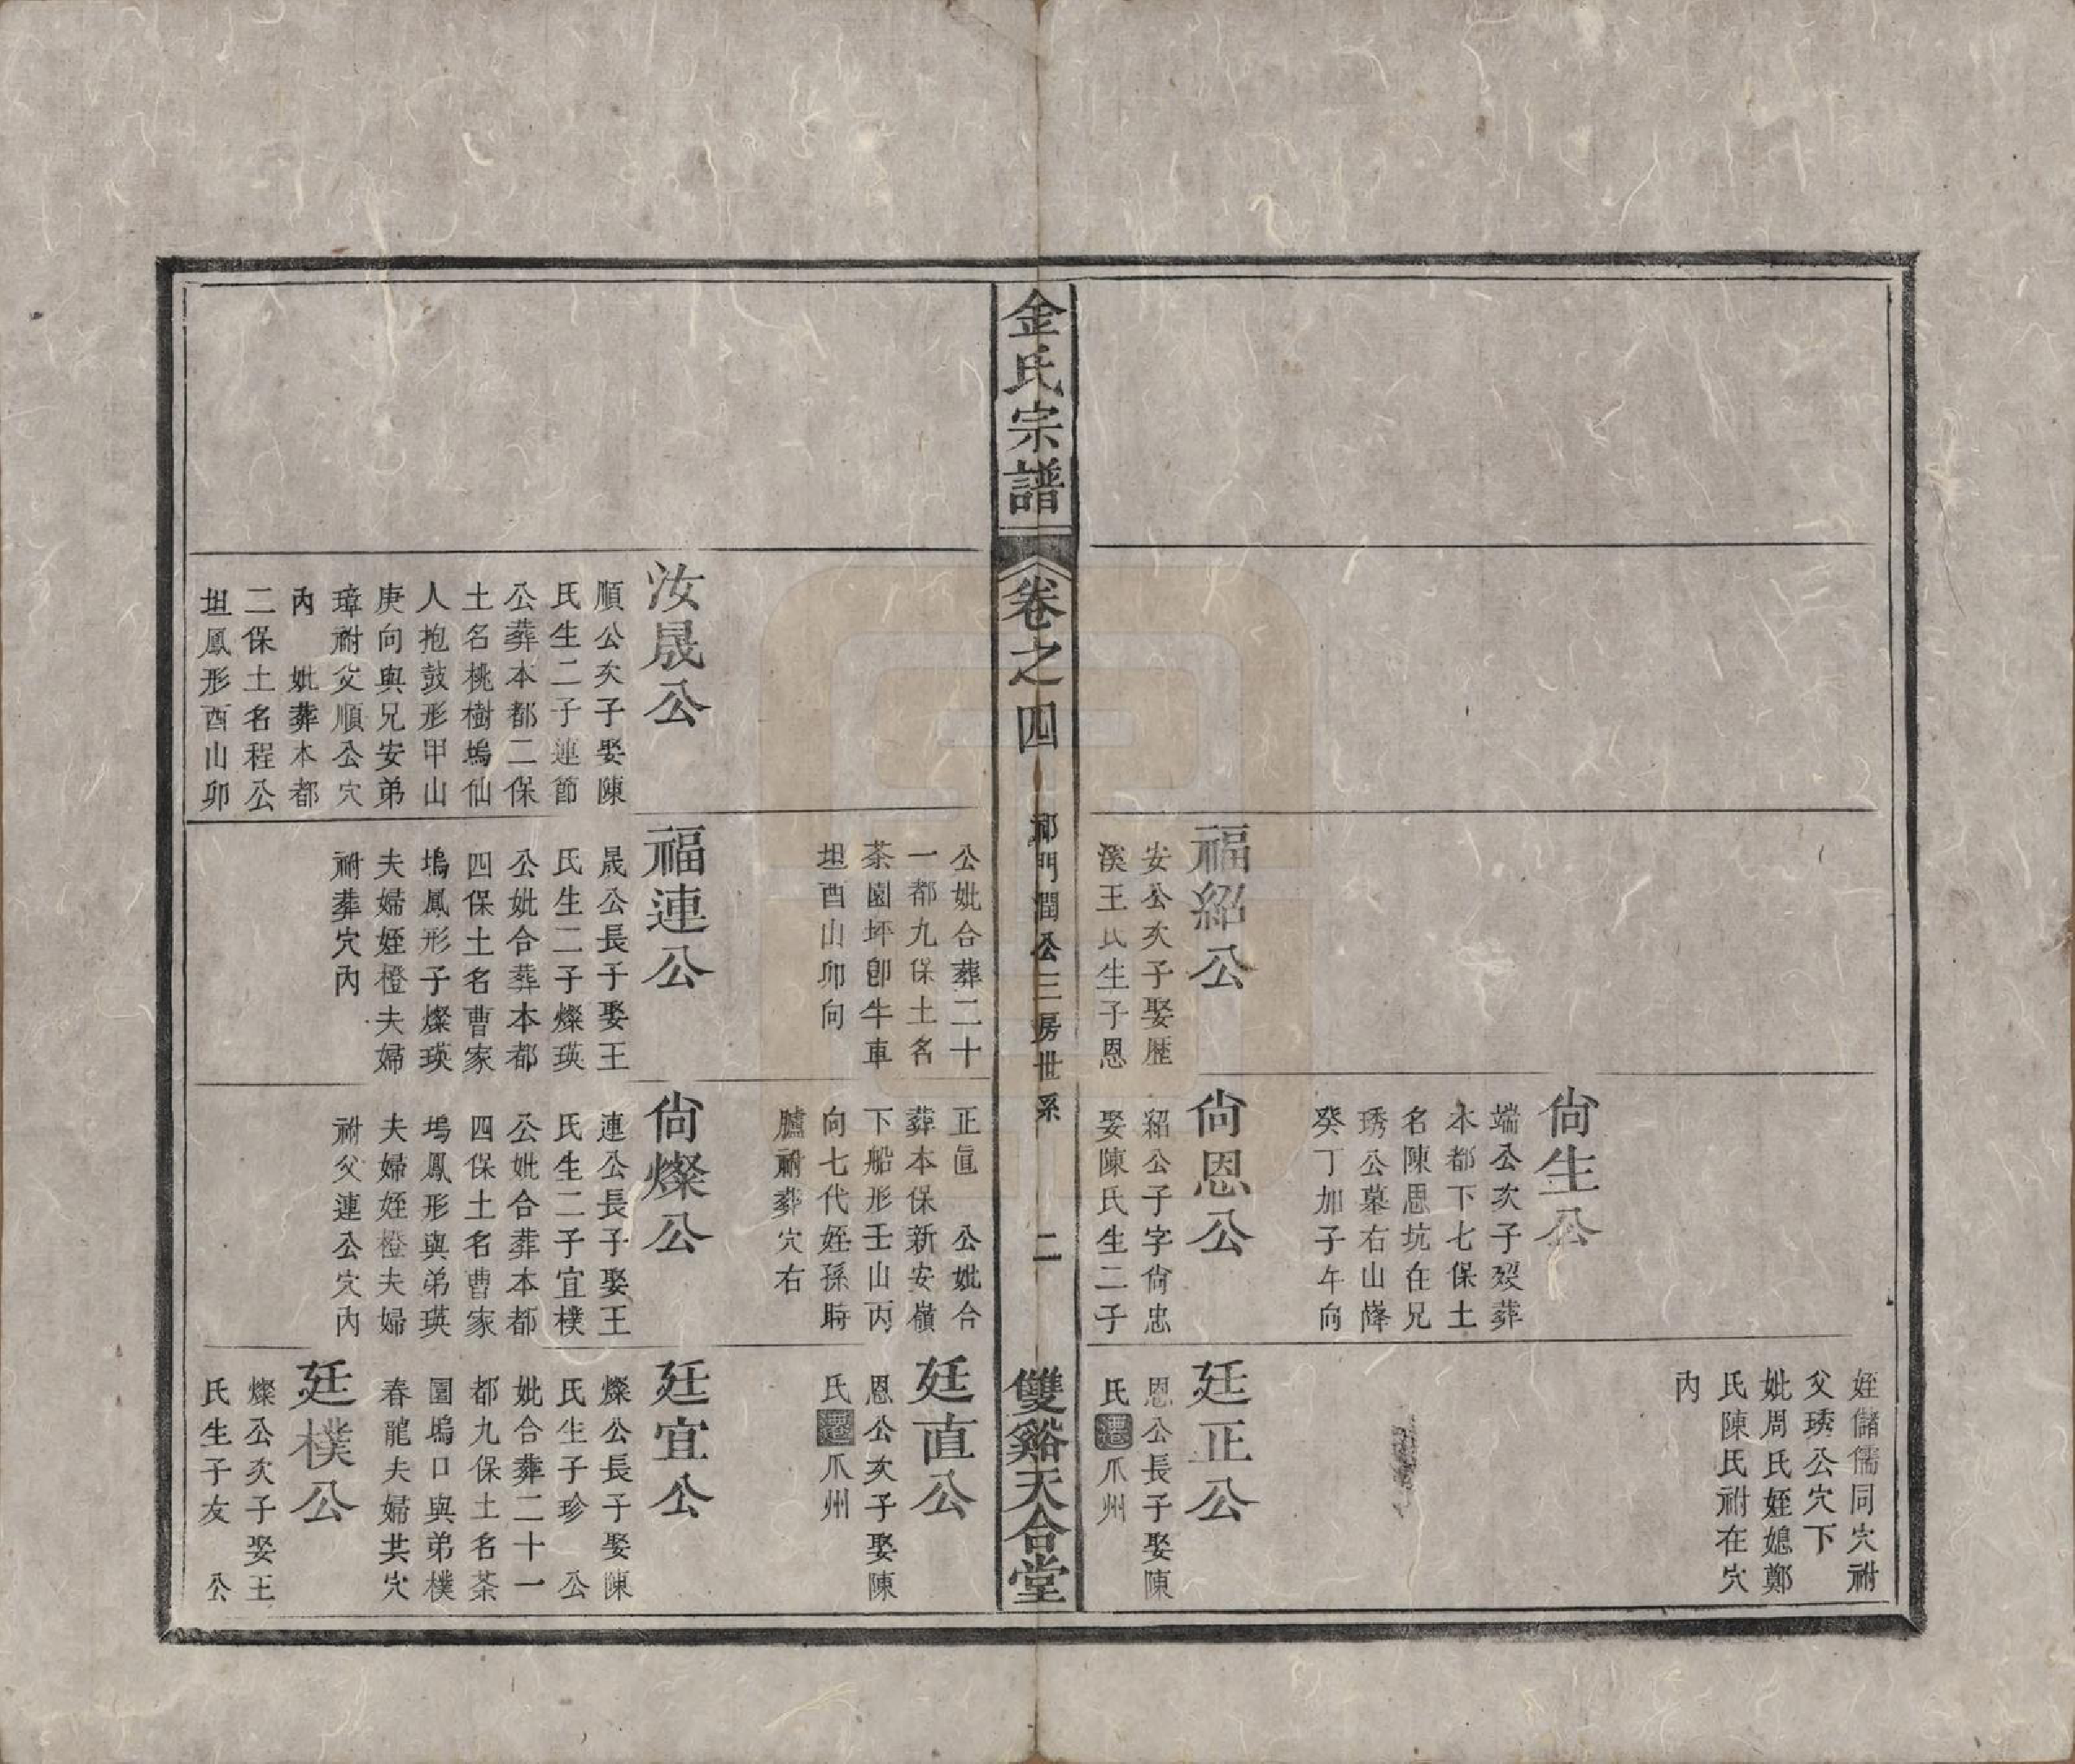 福紹公
安公次子娶歴
溪王氏生子恩
尙生公
端公次子殁葬
本都下七保土
名陳思坑在兄
琇公墓右山降
癸丁加子午向
尙恩公
紹公子字尙忠
娶陳氏生二子
姪儲儒同穴祔
父琇公穴下
妣周氏姪媳鄭
氏陳氏祔在穴
內
廷正公
恩公長子娶陳
氏遷爪州
金氏宗譜
卷之四
祁門潤公三房世系
二
雙谿天合堂
汝晟公
順公次子娶陳
氏生二子連節
公葬本都二保
土名桃樹塢仙
人抱鼓形甲山
庚向與兄安弟
璋祔父順公穴
內 妣葬本都
二保土名程公
坦鳳形酉山卯
公妣合葬二十
一都九保土名
茶園坪卽牛車
坦酉山卯向
福連公
晟公長子娶王
氏生二子燦瑛
公妣合葬本都
四保土名曹家
塢鳳形子燦瑛
夫婦姪橙夫婦
祔葬穴內
正直 公妣合
葬本保新安嶺
下船形壬山丙
向七代姪孫時
臚祔葬穴右
尙燦公
連公長子娶王
氏生二子宜樸
公妣合葬本都
四保土名曹家
塢鳳形與弟瑛
夫婦姪橙夫婦
祔父連公穴內
廷直公
恩公次子娶陳
氏遷爪州
廷宜公
燦公長子娶陳
氏生子珍 公
妣合葬二十一
都九保土名茶
園塢口與弟樸
春龍夫婦共穴
廷樸公
燦公次子娶王
氏生子友 公